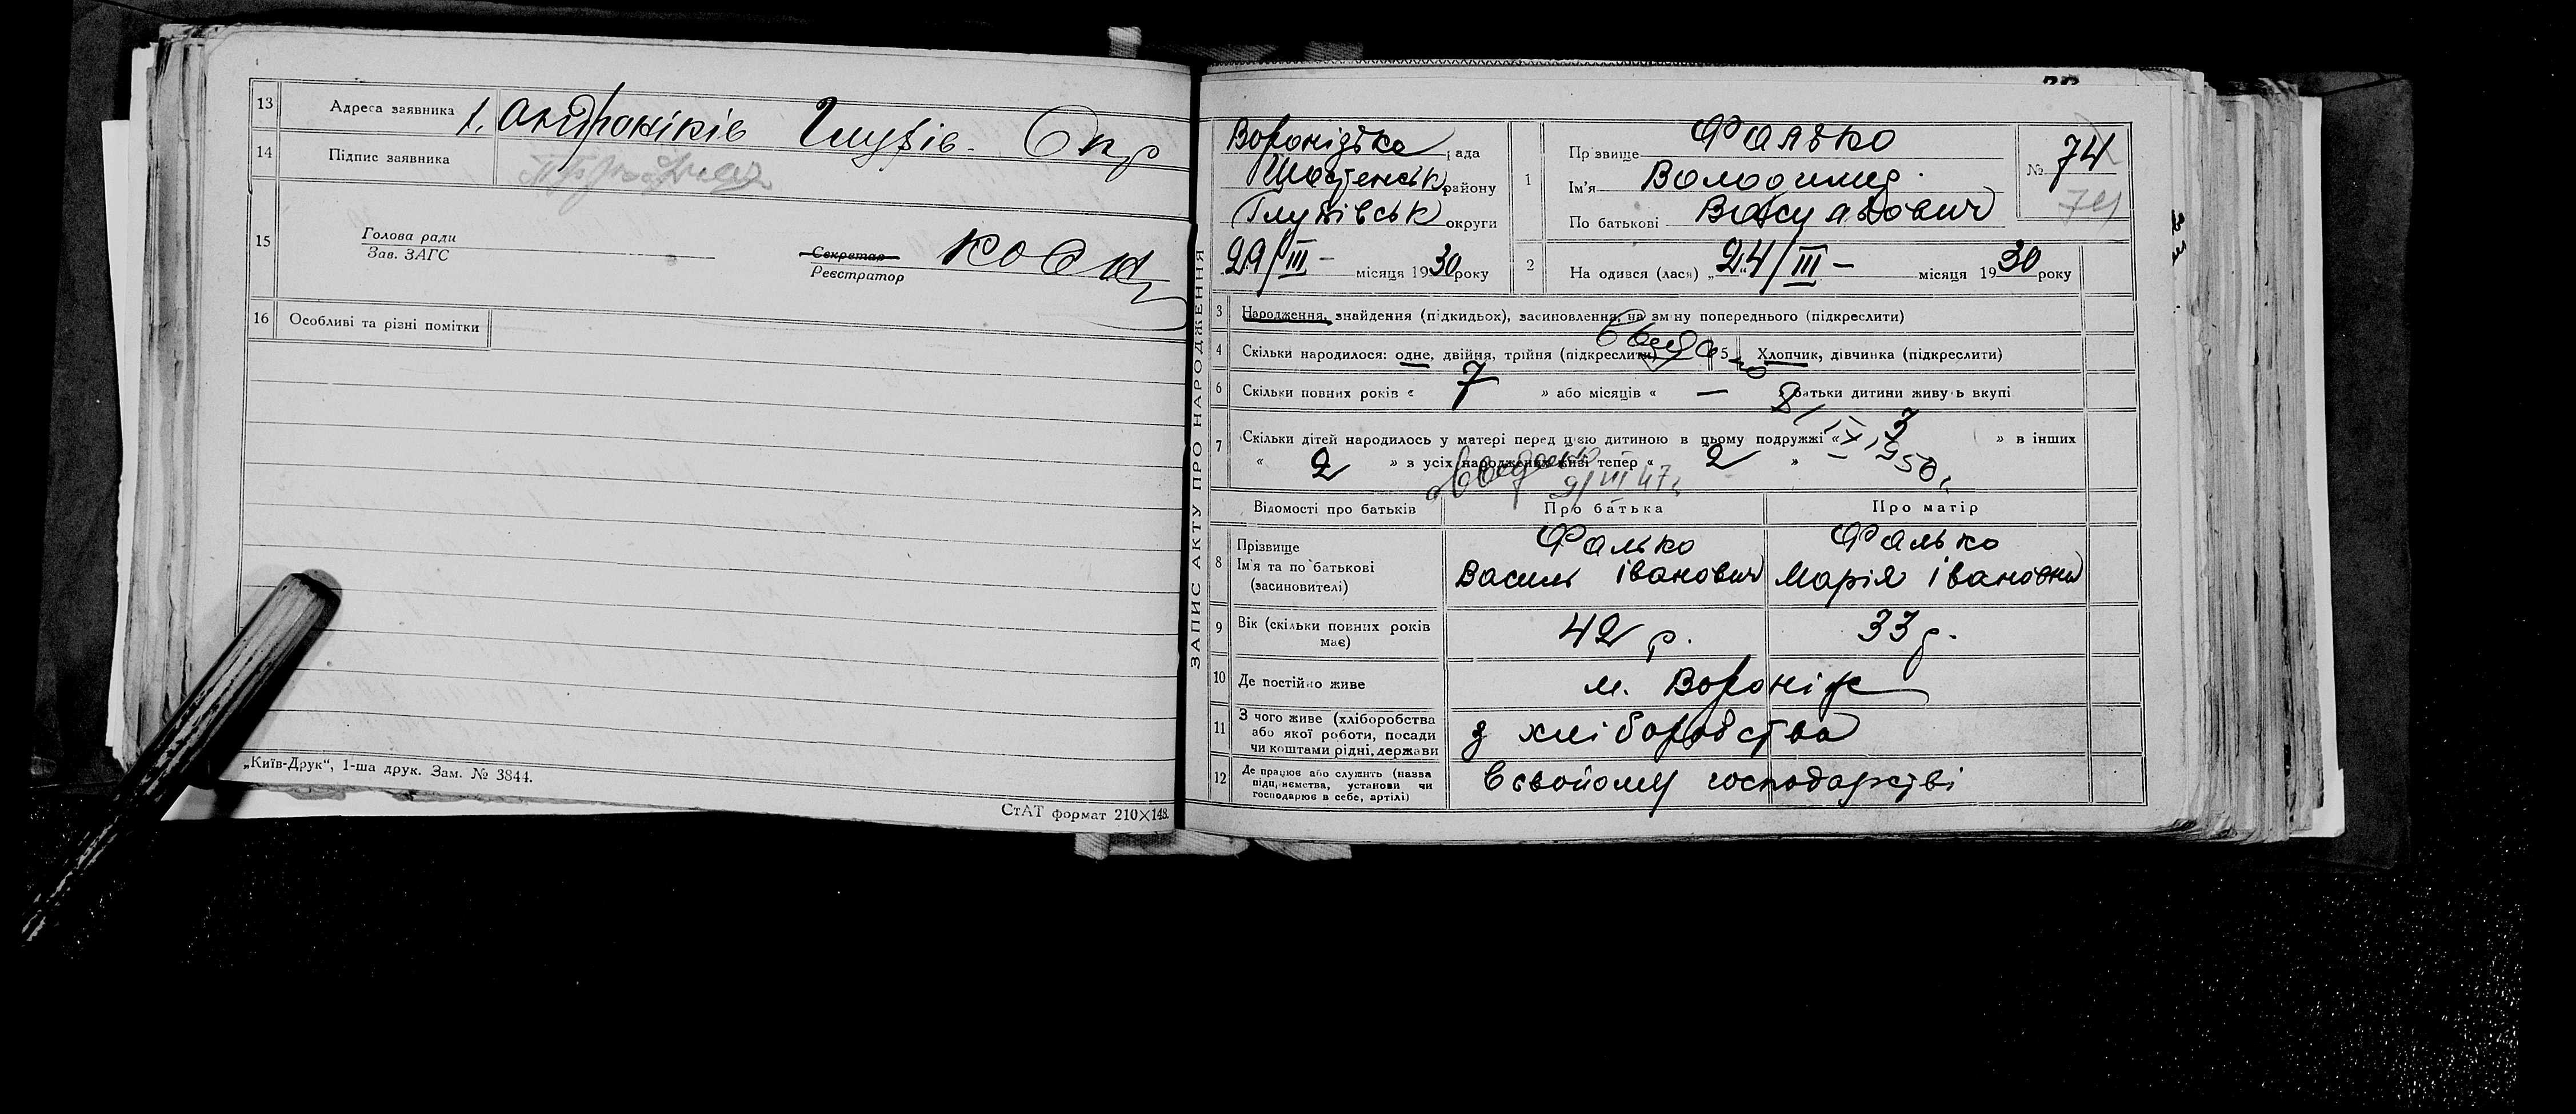 13 Адреса заявника
Глухів. Окр
14 Підпис заявника
15 Голова ради
Зав. ЗАГС
Секретар
Реєстратор
16 Особливі та різні помітки
„Київ-Друк“, 1-ша друк. Зам. № 3844.
СтАТ формат 210×148.
ЗАПИС АКТУ ПРО НАРОДЖЕННЯ
Воронізька рада
Шостенськ району
Глухівськ округи
29/III — місяця 1930 року
1 Прізвище Фалько
Ім'я Володимир.
По батькові Васильович
№ 74
74
2 На одився (лася) „24/III — місяця 1930 року
3 Народження, знайдення (підкидьок), засиновлення, на зміну попереднього (підкреслити)
4 Скільки народилося: одне, двійня, трійня (підкреслити)
5 Хлопчик, дівчинка (підкреслити)
6 Скільки повних років « 7 » або місяців « — » батьки дитини живуть вкупі
7 Скільки дітей народилось у матері перед цією дитиною в цьому подружжі « 3 » в інших
« 2 » з усіх народжених живі тепер « 2 »
9/III 47
Відомості про батьків
Про батька
Про матір
8 Прізвище
Ім'я та по батькові
(засиновителі)
Фалько
Василь Іванович
Фалько
Марія Івановна
9 Вік (скільки повних років
має)
42 р.
33 р.
10 Де постійно живе
м. Вороніж
11 З чого живе (хліборобства
або якої роботи, посади
чи коштами рідні, держави
з хліборобства
12 Де працює або служить (назва
підприємства, установи чи
господарює в себе, артілі)
В свойому господарстві